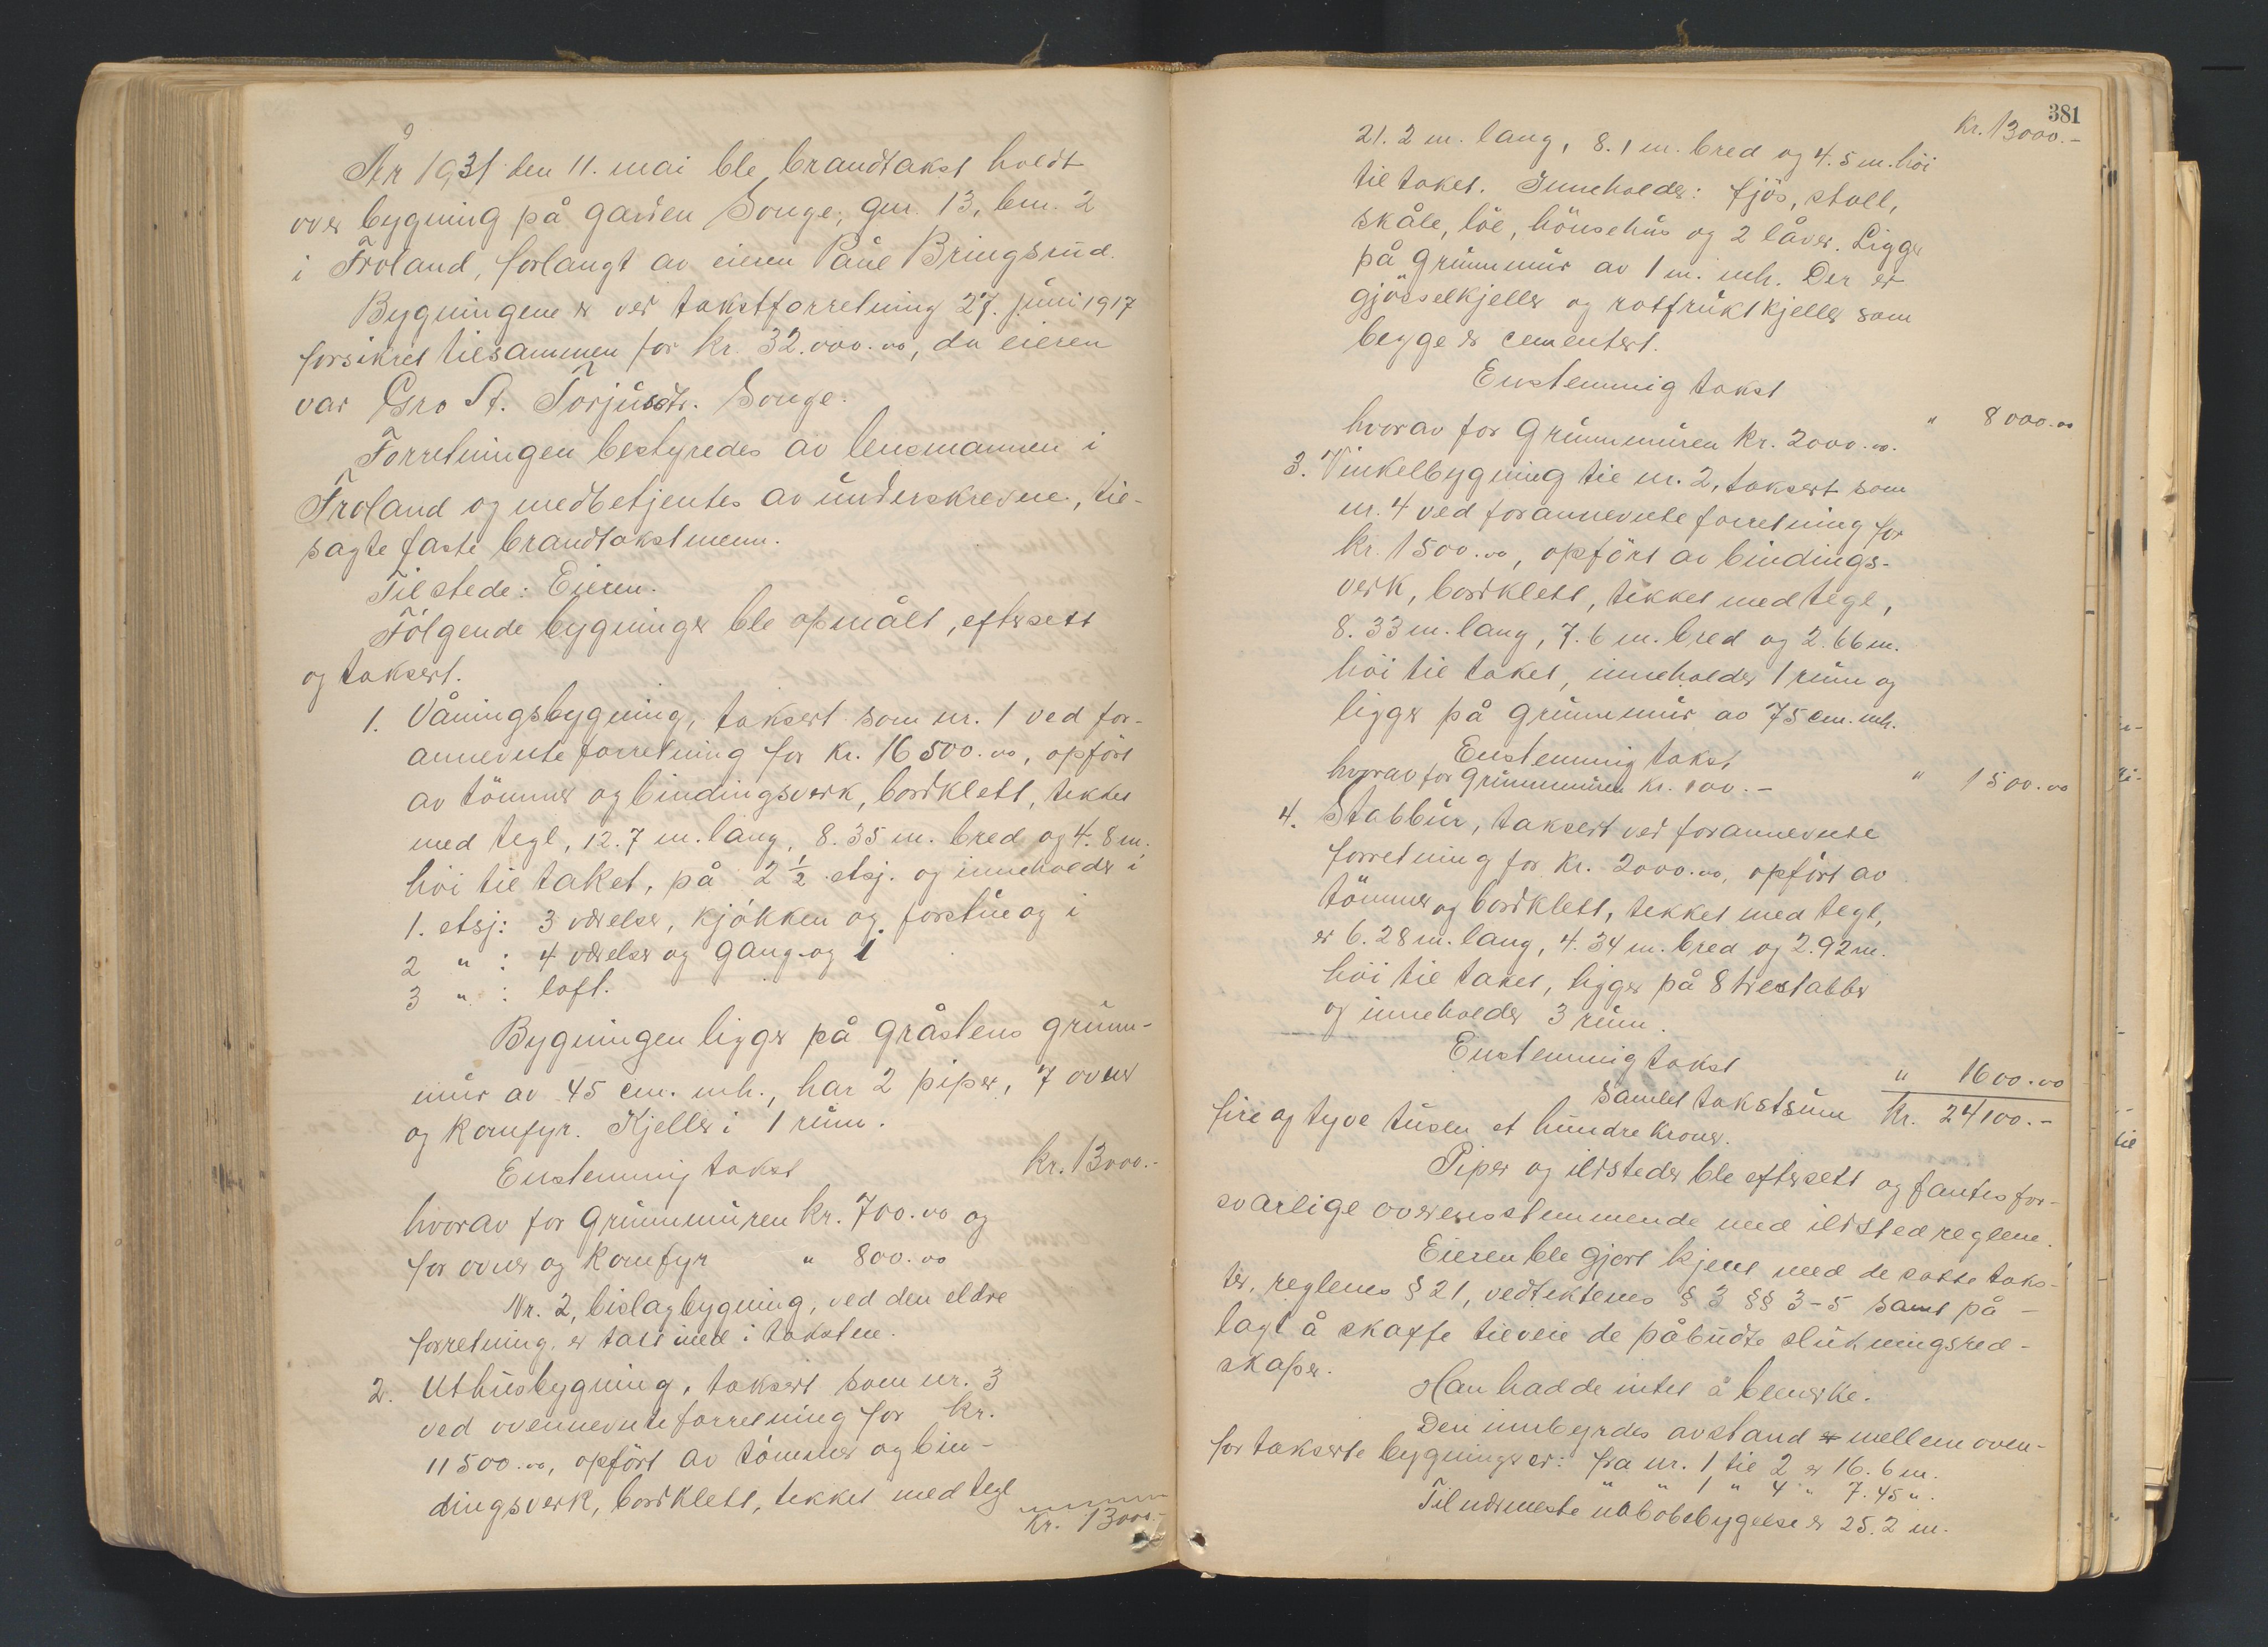 År 1931 den 11. mai ble brandtakst holdt
over bygning på garden Songe, gnr. 13, bnr. 2
i Froland, forlangt av eieren Påul Bringsrud.
Bygningene er ved takstforretning 27. juni 1917
forsikret tilsammen for kr. 32.000.00, da eieren
var Gro A. Torjusdtr. Songe.
Forretningen bestyredes av lensmannen i
Froland og medbetjentes av underskrevne, til-
sagte faste brandtakstmenn.
Tilstede: Eieren.
Følgende bygninger ble opmålt, eftersett
og taksert.
1. Våningsbygning, taksert som nr. 1 ved for-
annevnte forretning for kr. 16500.00, opført
av tömmer og bindingsverk, bordklett, tekket
med tegl, 12.7 m. lang, 8.35 m. bred og 4.8 m.
höi til taket, på 2 1/2 etsj. og inneholder i
1. etsj: 3 værelser, kjökken og forstue og i
2 " : 4 værelser og gang og i
3 " : loft.
Bygningen ligger på gråstens grunn-
mur av 45 cm. mh., har 2 piper, 7 ovner
og komfyr. Kjeller i 1 rum.
Enstemmig takst kr. 13000.-
hvorav for grunnmuren kr. 700.00 og
for ovner og komfyr " 800.00
Nr. 2, bislagbygning, ved den eldre
forretning er tatt med i taksten.
2. Uthusbygning, taksert som nr. 3
ved ovennevnte forretning for kr.
11500.00, opført av tömmer og bin-
dingsverk, bordklett, tekket med tegl
kr. 13000.-
381
kr. 13000.-
21.2 m. lang, 8.1 m. bred og 4.5 m. höi
til taket. Inneholder: fjös, stall,
skåle, löe, hönsehus og 2 låver. Ligger
på grunnmur av 1 m. mh. Der er
gjödselkjeller og rotfruktkjeller som
begge er cementert.
Enstemmig takst " 8000.00
hvorav for grunnmuren kr. 2000.00.
3. Vinkelbygning til nr. 2, taksert som
nr. 4 ved forannevnte forretning for
kr. 1500.00, opfört av bindings-
verk, bordklett, tekket med tegl,
8.33 m. lang, 7.6 m. bred og 2.66 m.
höi til taket, inneholder 1 rum og
ligger på grunnmur av 75 cm. mh.
Enstemmig takst " 1500.00
hvorav for grunnmuren kr. 100.-
4. Stabbur, taksert ved forannevnte
forretning for kr. 2000.00, opfört av
tömmer og bordklett, tekket med tegl,
er 6.28 m. lang, 4.34 m. bred og 2.92 m.
höi til taket, ligger på 8 trestabber
og inneholder 3 rum.
Enstemmig takst " 1600.00
Samlet takstsum kr. 24100.-
fire og tyve tusen et hundre kroner.
Piper og ildsteder ble eftersett og fantes for-
svarlige overensstemmende med ildstedreglene.
Eieren ble gjort kjent med de satte taks-
ter, reglenes § 21, vedtektenes § 3 §§ 3-5 samt på-
lagt å skaffe tilveie de påbudte slukningsred-
skaper.
Han hadde intet å bemerke.
Den innbyrdes avstand mellem oven-
for takserte bygninger er: fra nr. 1 til 2 er 16.6 m.
" " 1 " 4 " 7.45 ".
Til nærmeste nabobebygelse er 25.2 m.